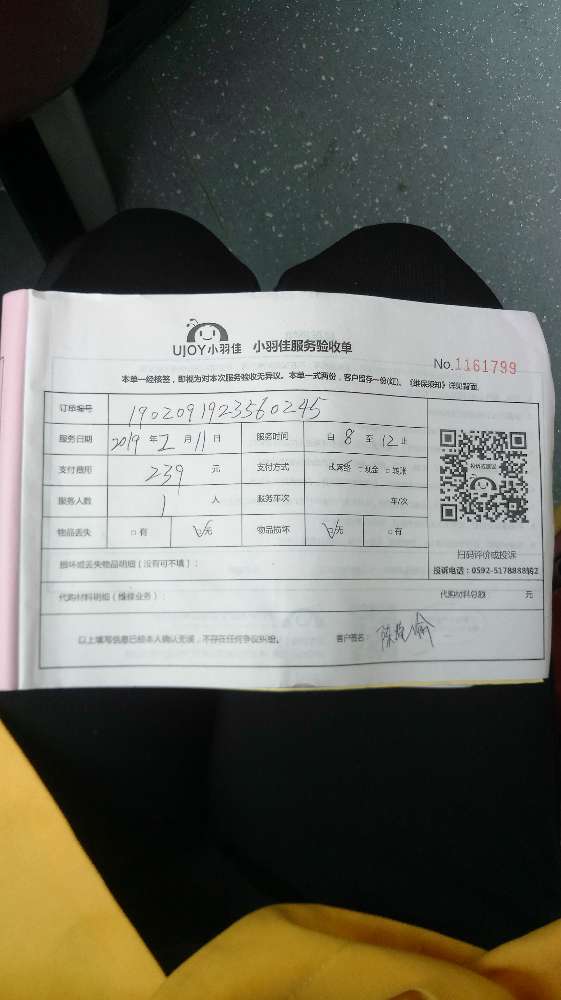 UJOY小羽佳 小羽佳服务验收单
No.1161799
本单一经核签，即视为对本次服务验收无异议。本单一式两份，客户留存一份(红)。《维保须知》详见背面
订单编号 1902091923560245
服务日期 2019 年 2 月 11 日 服务时间 自 8 至 12 止
支付费用 239 元 支付方式 现金
服务人数 1 人 服务车次 车/次
物品丢失 有 无 物品损坏 无 有
扫码评价或投诉
投诉电话：0592-5178888转2
损坏或丢失物品明细（没有可不填）：
代购材料明细（维修业务）： 代购材料总额 元
以上填写信息已经本人确认无误，不存在任何争议纠纷。 客户签名：陈